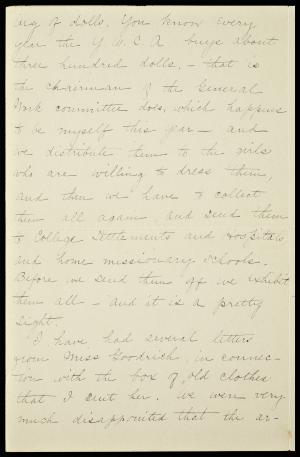 ing of dolls. You know every
year the Y. W. C. A buys about
three hundred dolls, - that is
the chairman of the General
Work committee does, which happens
to be myself this year - and
we distribute them to the girls
who are willing to dress them,
and then we have to collect
them all again, and send them
to College Settlements and Hospitals
and home missionary schools.
Before we send them off we exhibit
them all - and it is a pretty
sight.
I have had several letters
from Miss Goodrich, in connec-
tion with the box of old clothes
that I sent her. We were very
much disappointed that the ar-